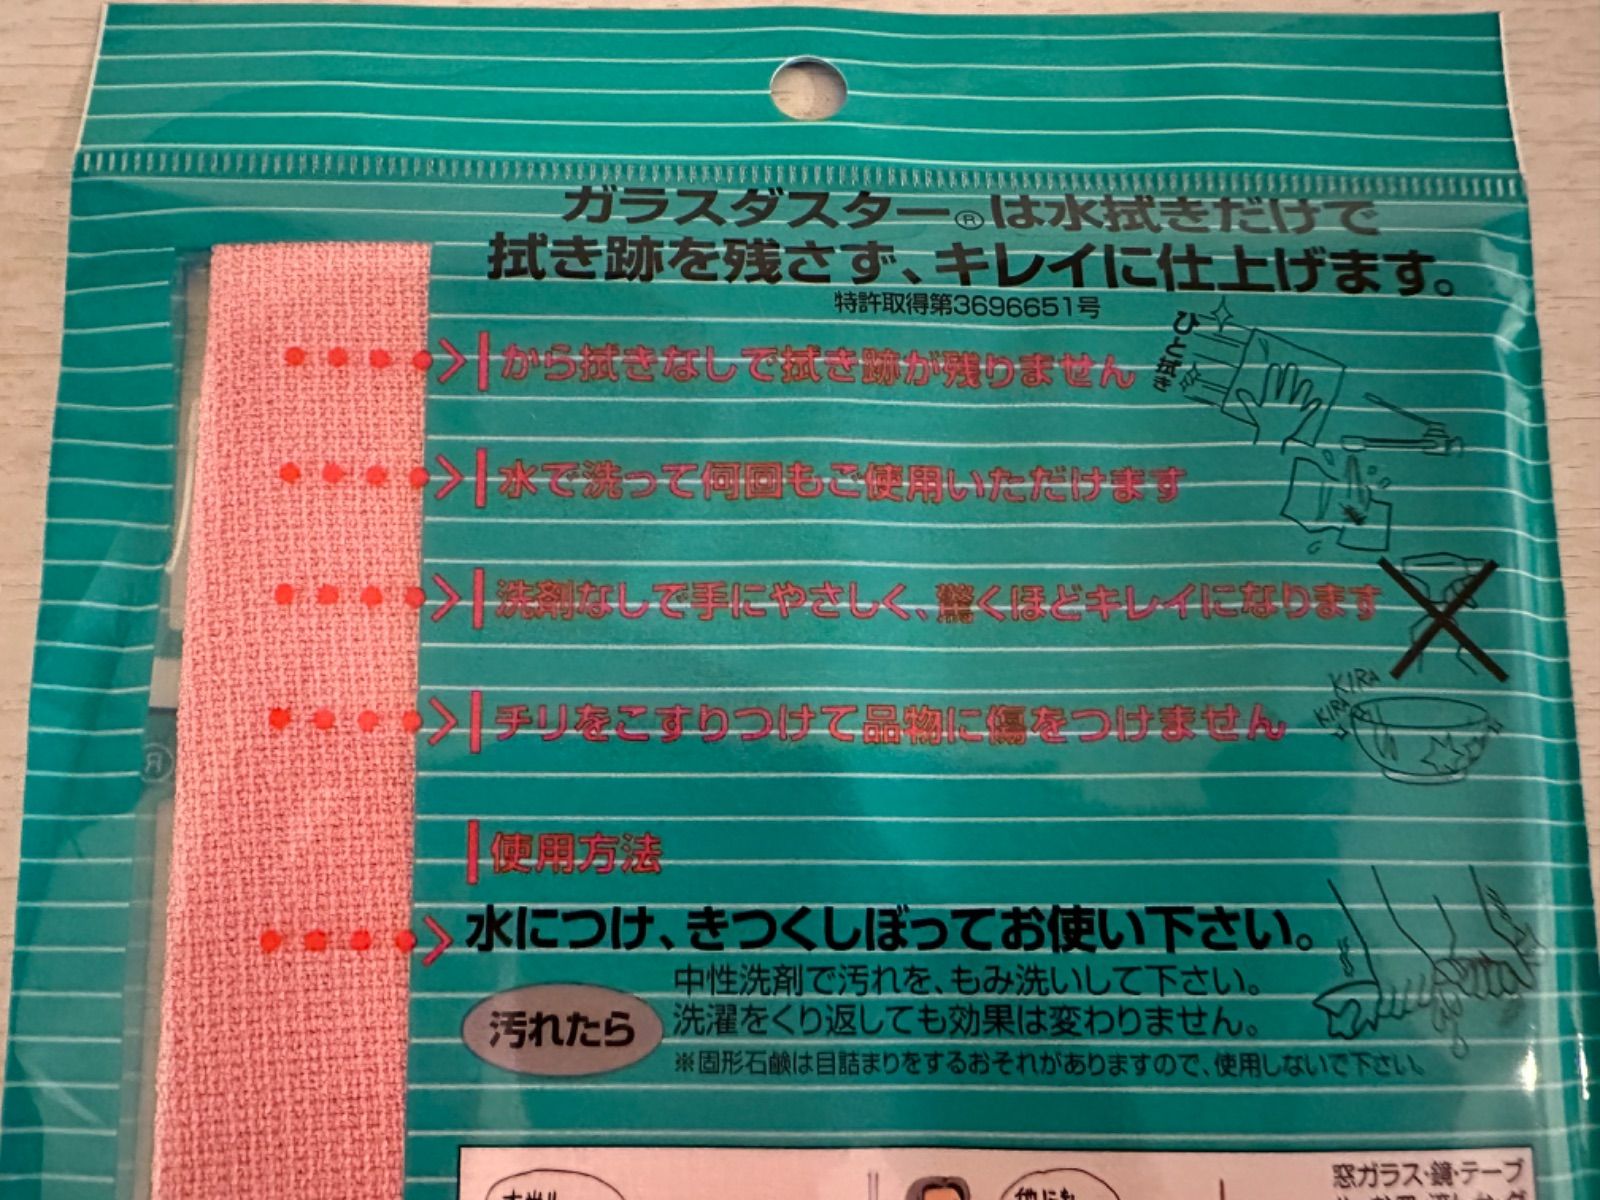 ガラスダスター®は水拭きだけで
拭き跡を残さず、キレイに仕上げます。
特許取得第3696651号
から拭きなしで拭き跡が残りません
ひと拭き
水で洗って何回もご使用いただけます
洗剤なしで手にやさしく、驚くほどキレイになります
KIRA
KIRA
チリをこすりつけて品物に傷をつけません
®
使用方法
水につけ、きつくしぼってお使い下さい。
汚れたら
中性洗剤で汚れを、もみ洗いして下さい。
洗濯をくり返しても効果は変わりません。
※固形石鹸は目詰まりをするおそれがありますので、使用しないで下さい。
窓ガラス・鏡・テーブ